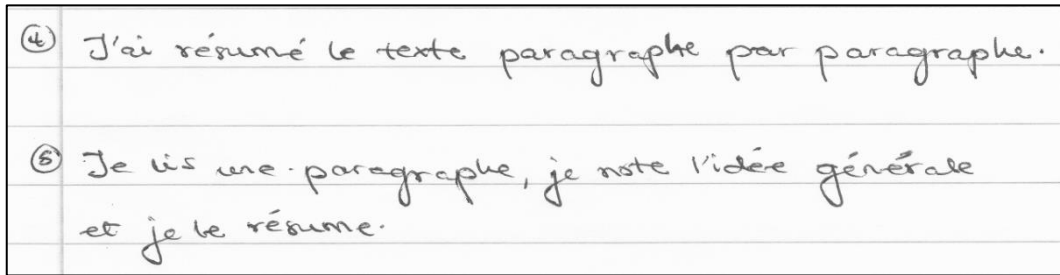 ④ J'ai résumé le texte paragraphe par paragraphe.
⑤ Je lis une paragraphe, je note l'idée générale
et je le résume.